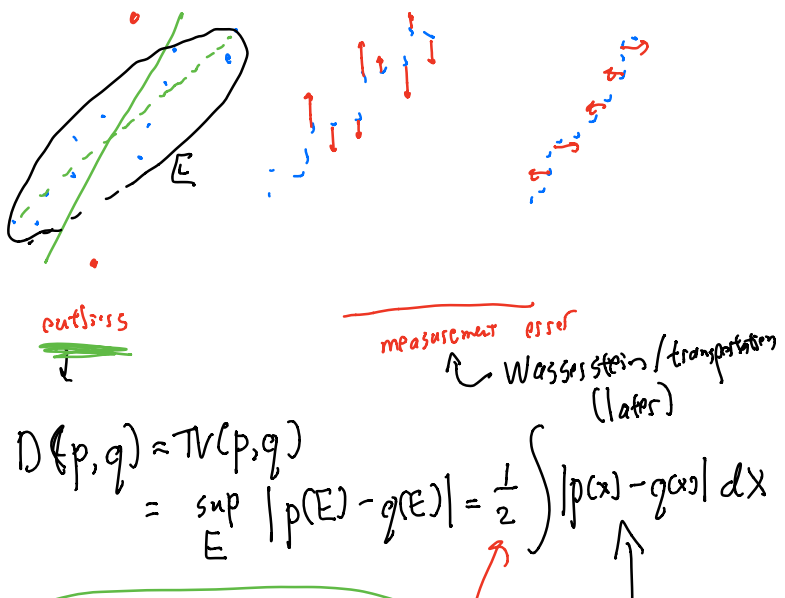 E
outliers
measurement error
Wasserstein/transportation
(later)
D(p,q) = TV(p,q)
= sup |p(E) - q(E)| = 1/2 ∫ |p(x) - q(x)| dx
E